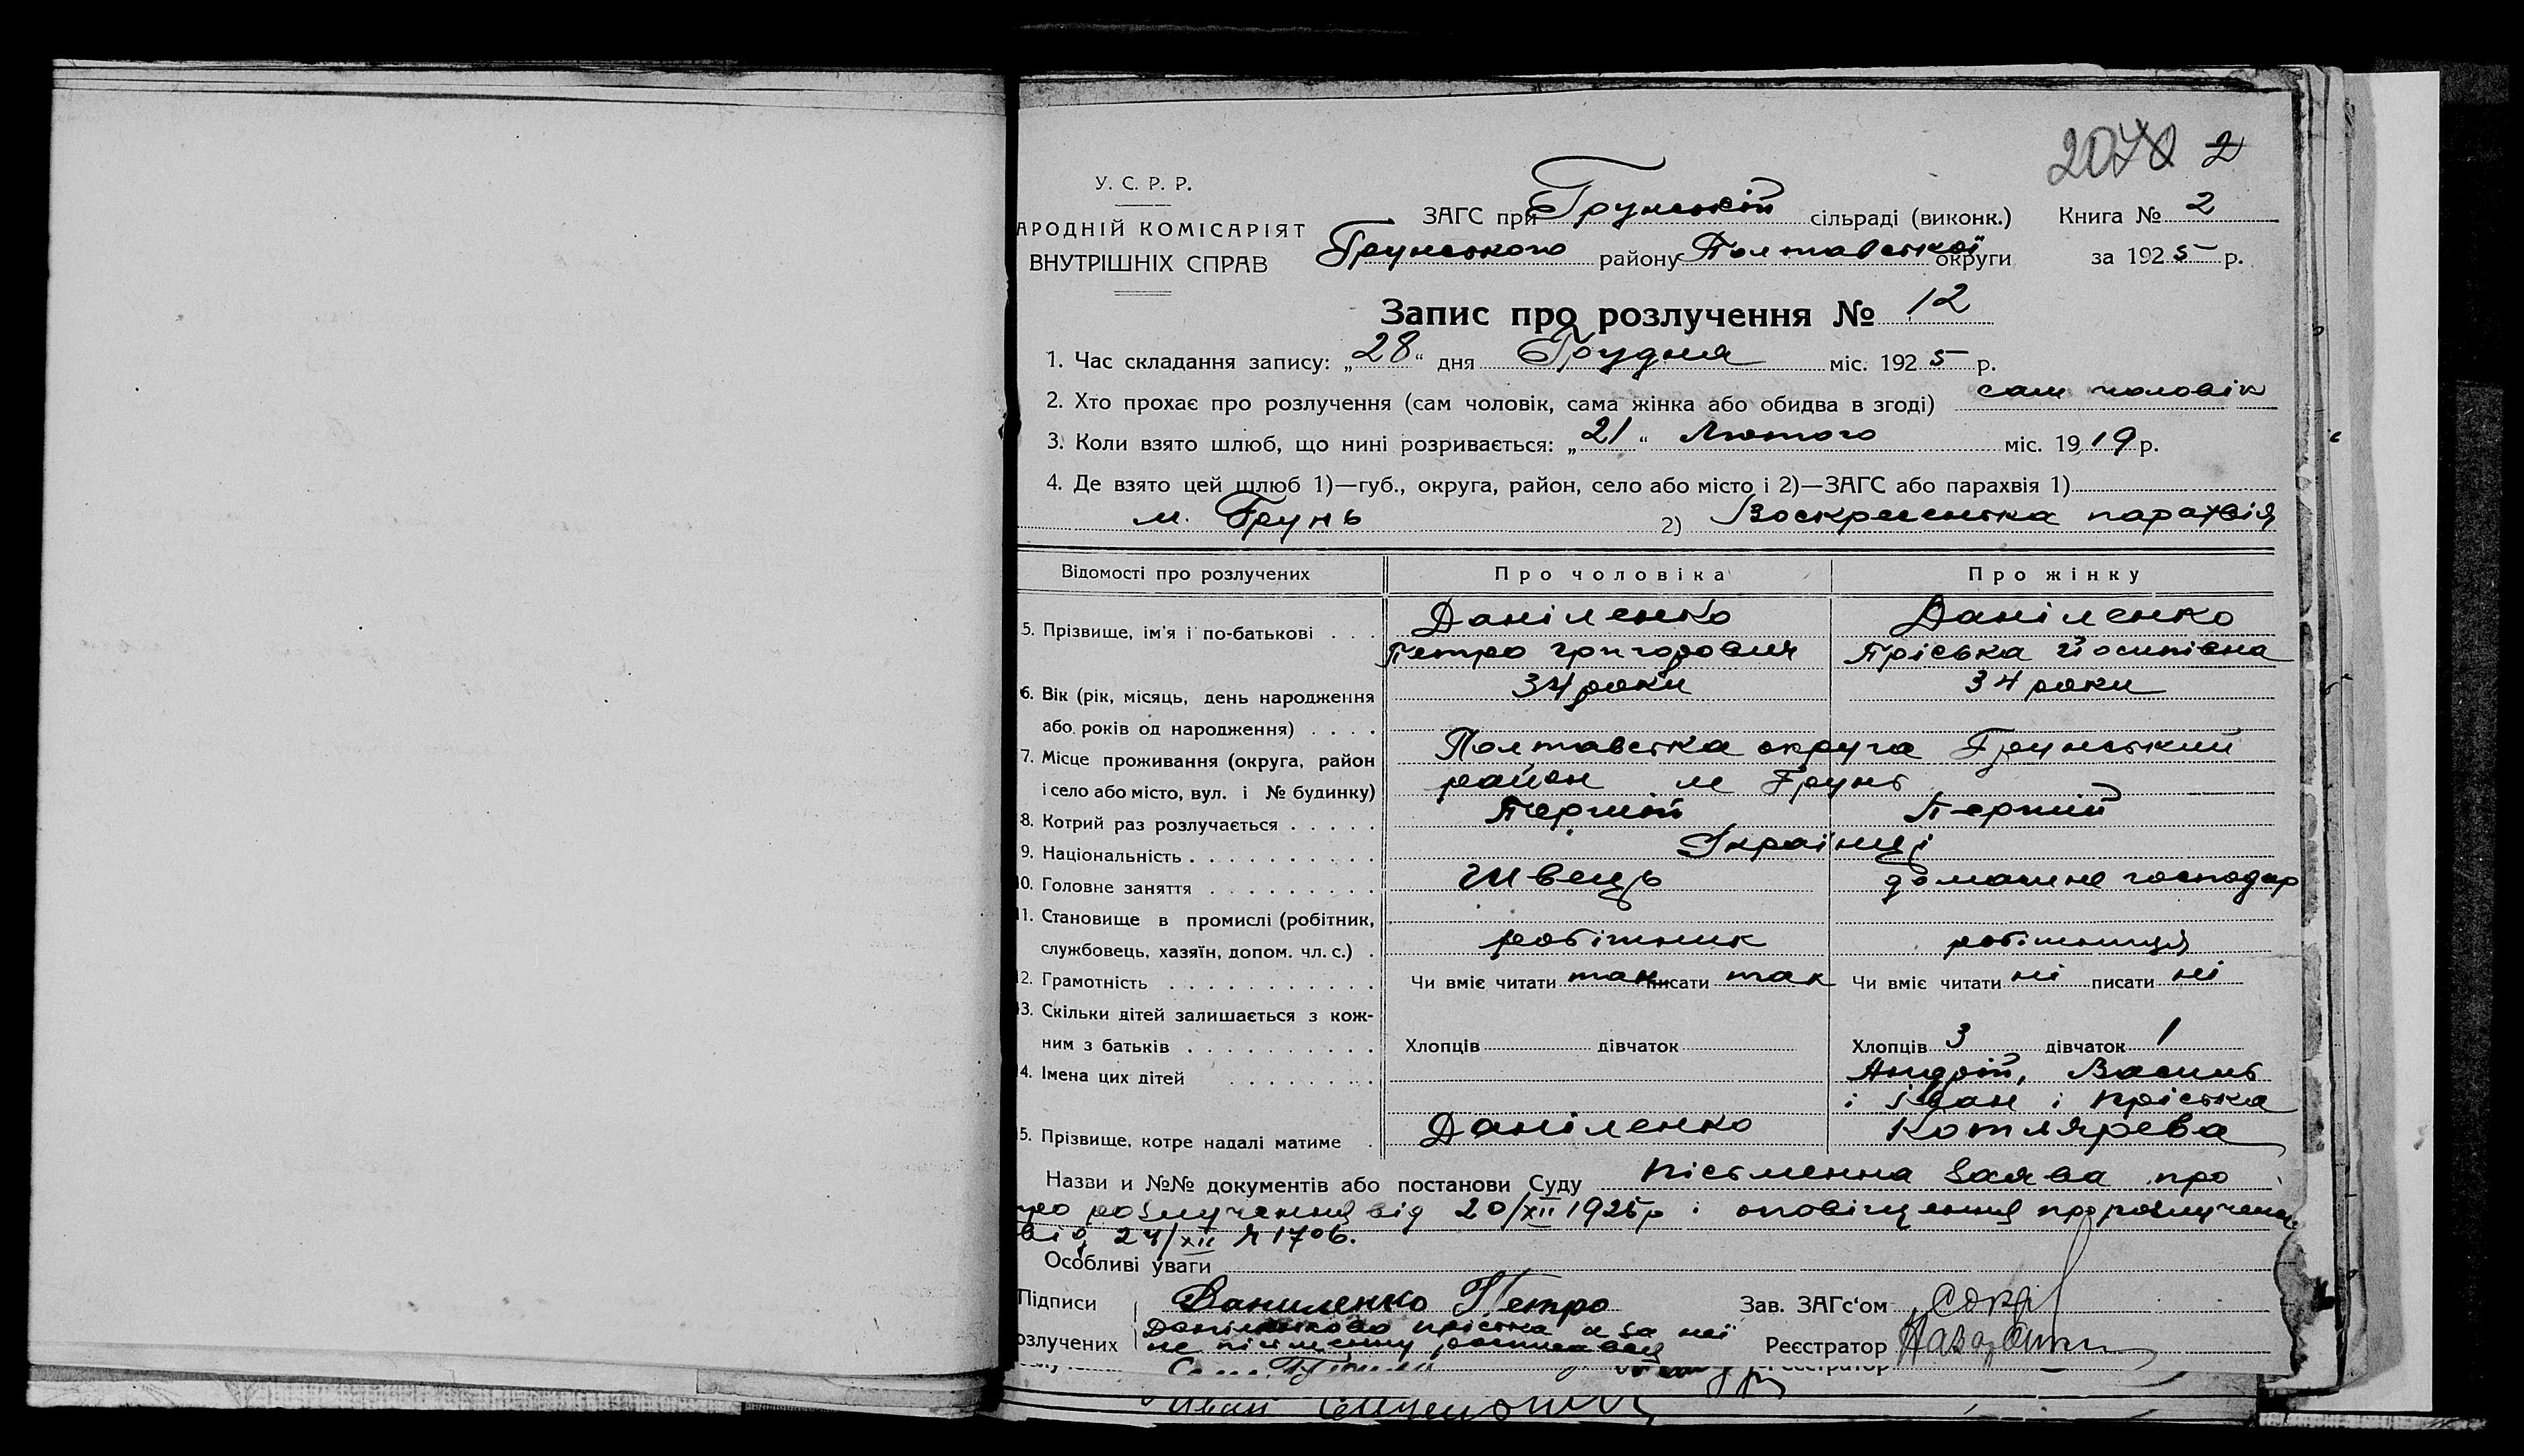 2
У. С. Р. Р.
АРОДНІЙ КОМІСАРІЯТ
ВНУТРІШНІХ СПРАВ
ЗАГС при Грунській сільраді (виконк.) Книга № 2
Грунського району Полтавської округи за 1925 р.
Запис про розлучення № 12
1. Час складання запису: „28“ дня Грудня міс. 1925 р.
2. Хто прохає про розлучення (сам чоловік, сама жінка або обидва в згоді) сам чоловік
3. Коли взято шлюб, що нині розривається: „21“ Лютого міс. 1919 р.
4. Де взято цей шлюб 1)—губ., округа, район, село або місто і 2)—ЗАГС або парахвія 1)
м. Грунь 2) Воскресенська парахвія
Відомості про розлучених Про чоловіка Про жінку
5. Прізвище, ім'я і по-батькові . . . Даніленко Даніленко
Петро Григорович Пріська Йосипівна
6. Вік (рік, місяць, день народження 34 роки 34 роки
або років од народження) . . . .
7. Місце проживання (округа, район Полтавська округа Грунський
і село або місто, вул. і № будинку) район м Грунь
8. Котрий раз розлучається . . . . . Перший Перший
9. Національність . . . . . . . . . . Українці
10. Головне заняття . . . . . . . . . Швець домашнє господар
11. Становище в промислі (робітник,
службовець, хазяїн, допом. чл. с.) . робітник робітниця
12. Грамотність . . . . . . . . . . . Чи вміє читати так писати так Чи вміє читати ні писати ні
13. Скільки дітей залишається з кож-
ним з батьків . . . . . . . . . . Хлопців дівчаток Хлопців 3 дівчаток 1
14. Імена цих дітей . . . . . . . . Андрій, Василь
і Іван і Пріська
15. Прізвище, котре надалі матиме . Даніленко Котлярева
Назви и №№ документів або постанови Суду Пісьменна заява про
про розлучення від 20/XII 1925р і оповіщення про розлучення
від 24/XII № 1706.
Особливі уваги
Підписи Даниленко Петро Зав. ЗАГс'ом
озлучених Даніленкова Пріська а за неї Реєстратор
не пісьменну росписався
Реєстратор
Иван